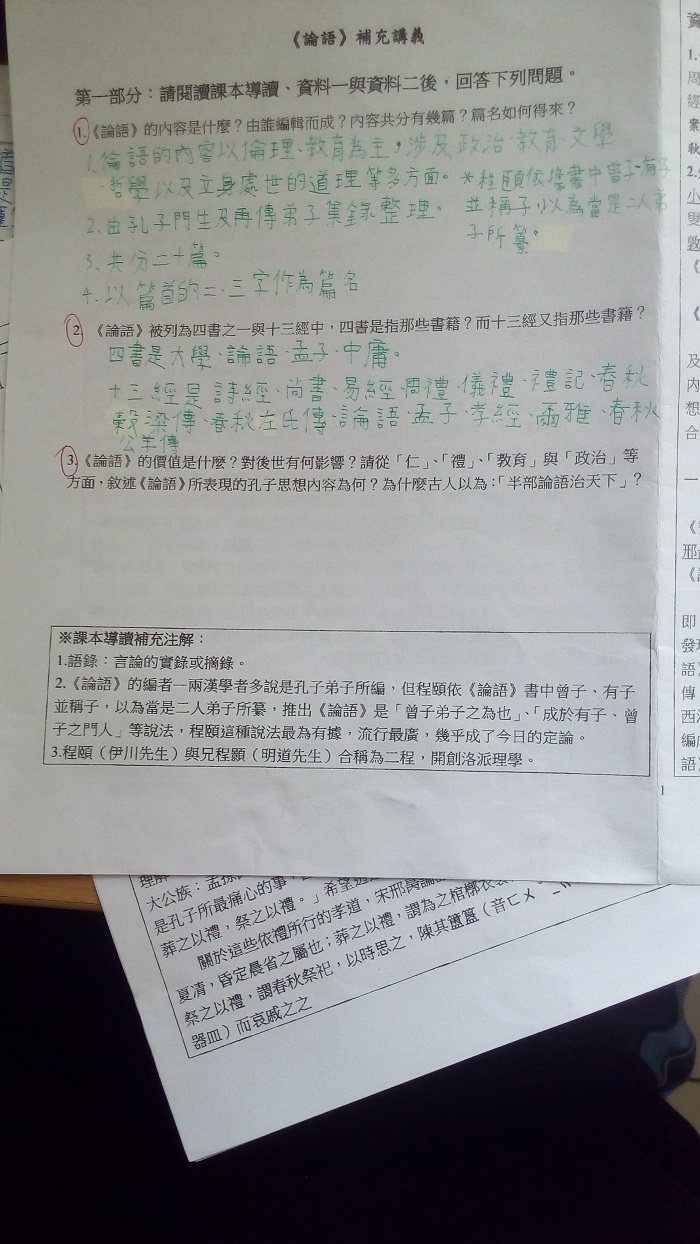 《論語》補充講義
第一部分：請閱讀課本導讀、資料一與資料二後，回答下列問題。
1.《論語》的內容是什麼？由誰編輯而成？內容共分有幾篇？篇名如何得來？
1.論語的內容以倫理、教育為主，涉及政治、教育、文學
哲學以及立身處世的道理等多方面。
*程頤依據書中曾子、有子
並稱子，以為當是二人弟
子所纂。
2、由孔子門生及再傳弟子集錄整理。
3、共分二十篇。
4、以篇首的二、三字作為篇名
2.《論語》被列為四書之一與十三經中，四書是指那些書籍？而十三經又指那些書籍？
四書是大學、論語、孟子、中庸。
十三經是詩經、尚書、易經、周禮、儀禮、禮記、春秋
穀梁傳、春秋左氏傳、論語、孟子、孝經、爾雅、春秋
公羊傳
3.《論語》的價值是什麼？對後世有何影響？請從「仁」、「禮」、「教育」與「政治」等
方面，敘述《論語》所表現的孔子思想內容為何？為什麼古人以為：「半部論語治天下」？
※課本導讀補充注解：
1.語錄：言論的實錄或摘錄。
2.《論語》的編者—兩漢學者多說是孔子弟子所編，但程頤依《論語》書中曾子、有子
並稱子，以為當是二人弟子所纂，推出《論語》是「曾子弟子之為也」、「成於有子、曾
子之門人」等說法，程頤這種說法最為有據，流行最廣，幾乎成了今日的定論。
3.程頤（伊川先生）與兄程顥（明道先生）合稱為二程，開創洛派理學。
1
大公族：孟孫
是孔子所最痛心的事，
葬之以禮，祭之以禮。」希望
關於這些依禮所行的孝道，宋邢昺論
夏凊，昏定晨省之屬也；葬之以禮，謂為之棺槨衣
祭之以禮，謂春秋祭祀，以時思之，陳其簠簋（音ㄈㄨ
器皿）而哀戚之之
資
1.
周
經
案
秋
2.
小
叟
敦
《
及
內
想
合
一
《
邢
《
即
發
語
傳
西
編
語